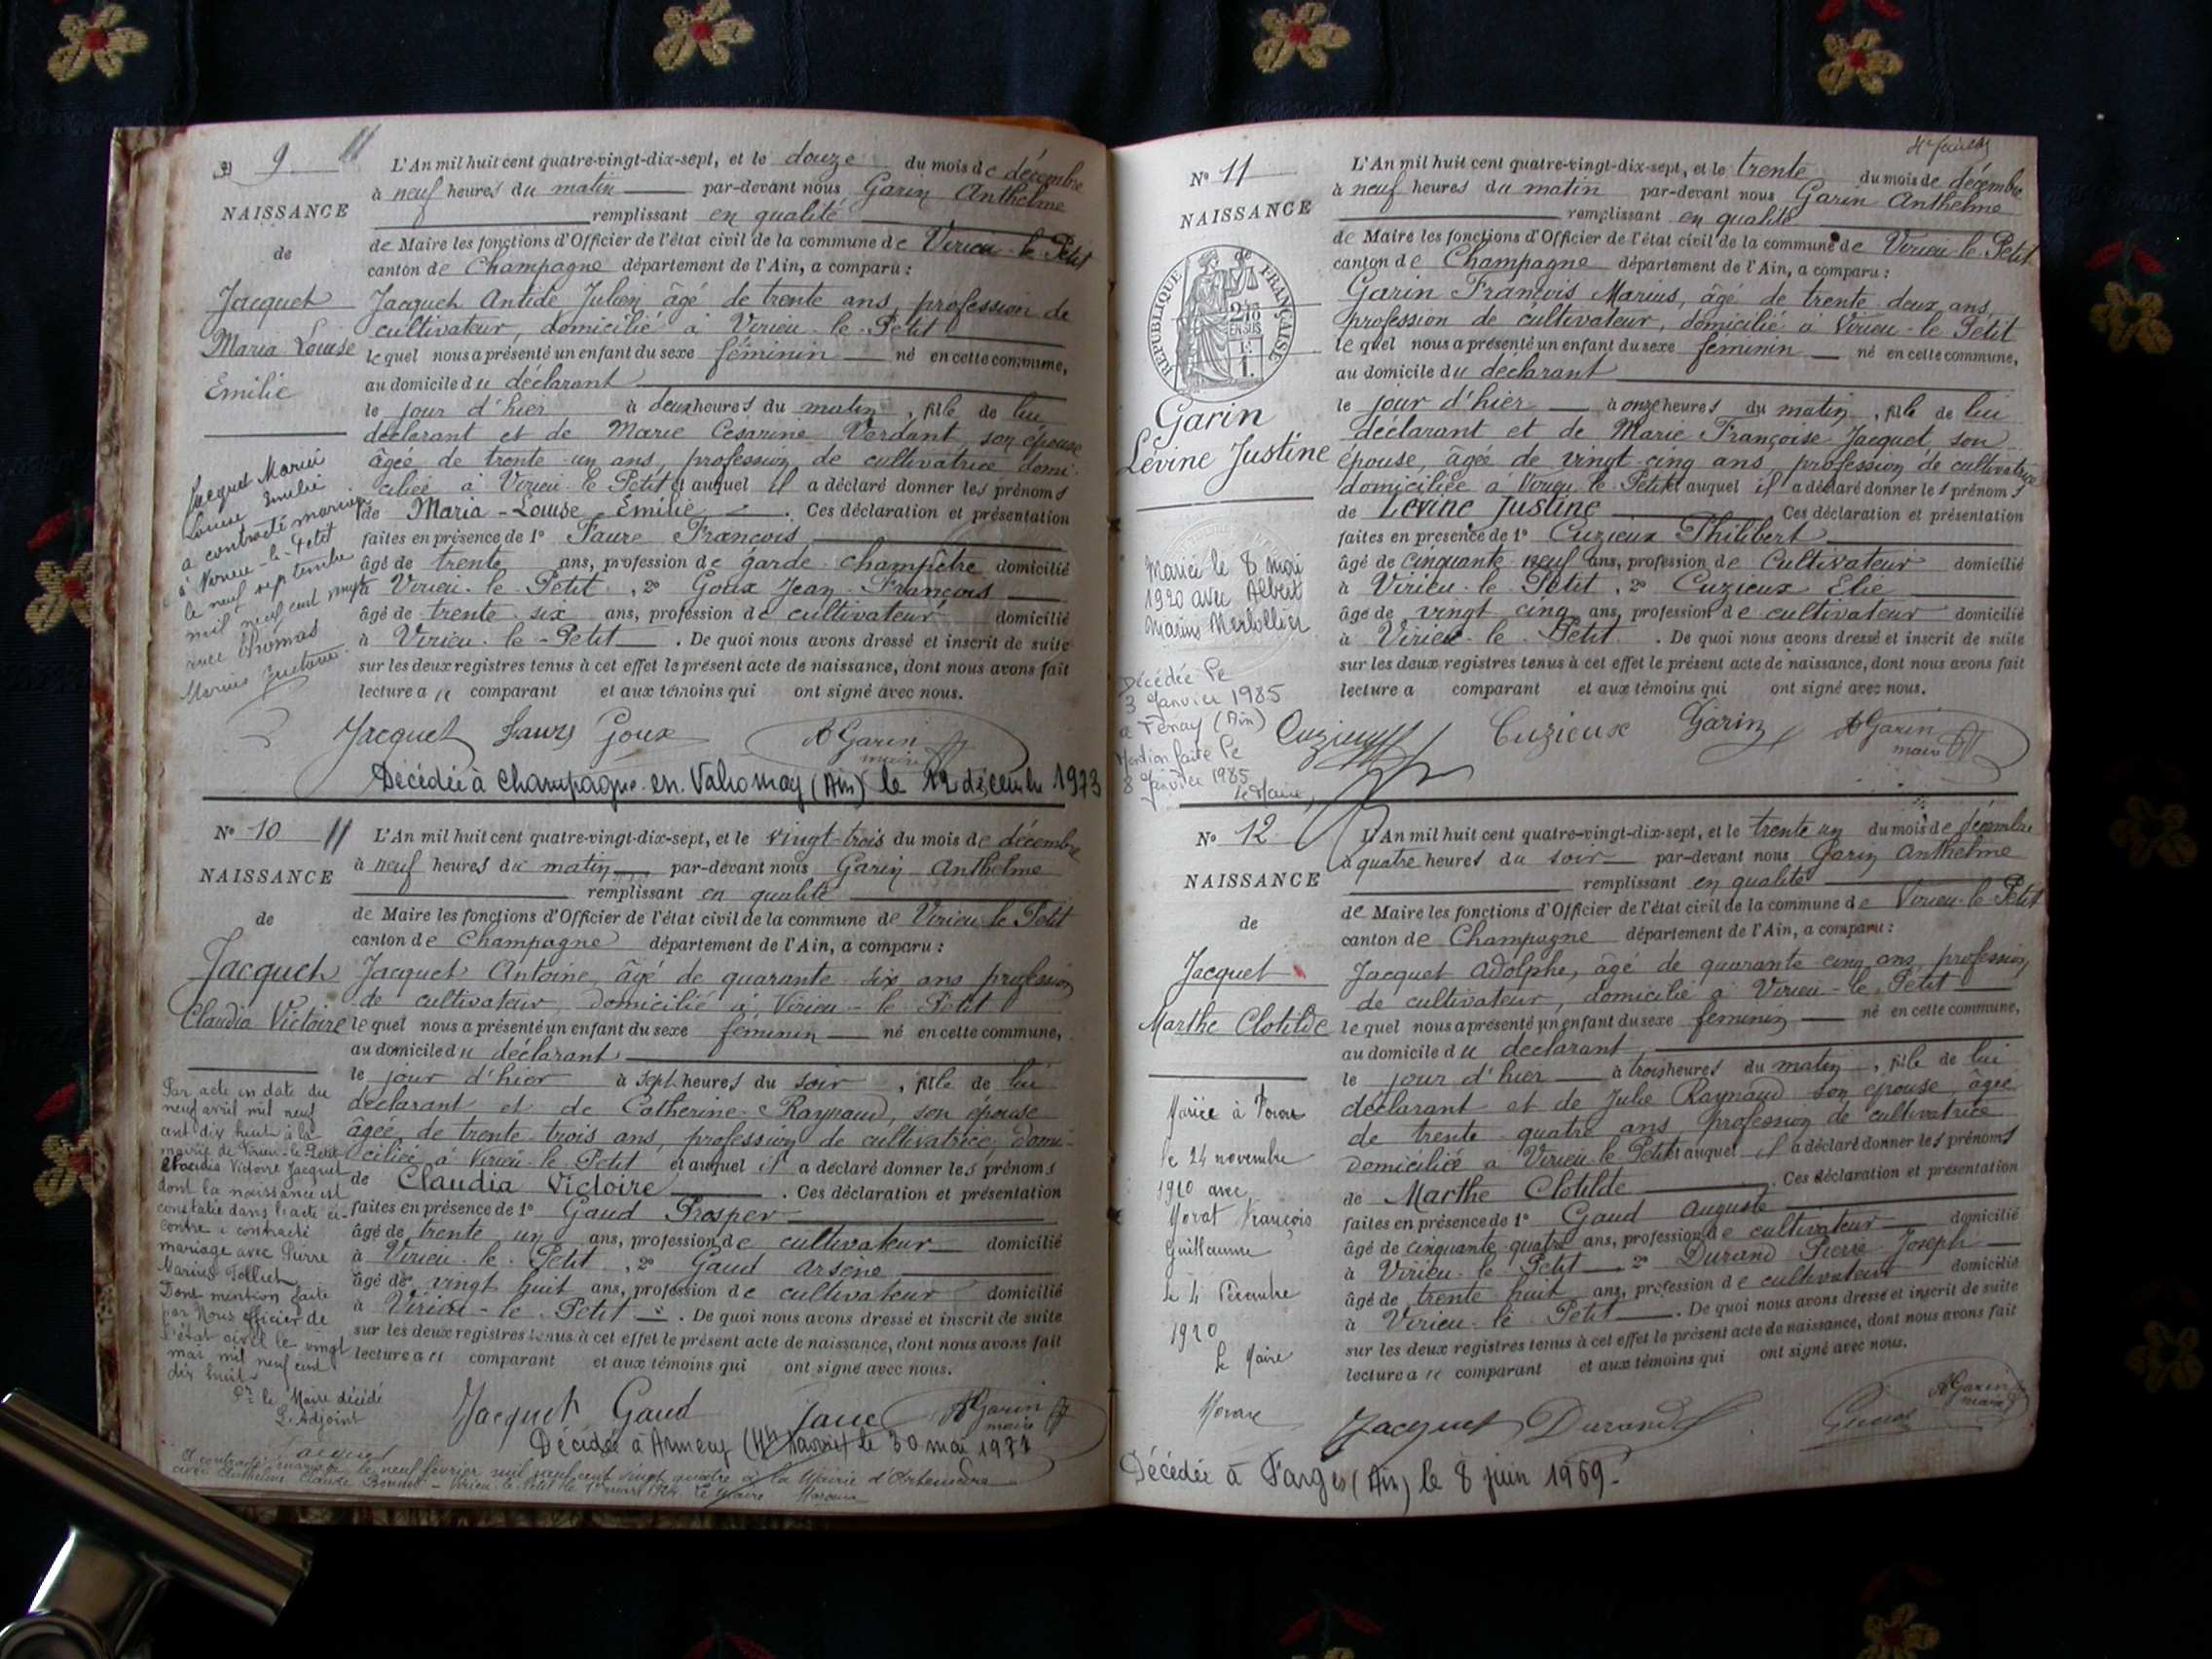 N° 9
NAISSANCE
de
Jacquet
Maria Louise
Emilie
L'An mil huit cent quatre-vingt-dix-sept, et le douze du mois de décembre
à neuf heures du matin par-devant nous Garin Anthelme
remplissant en qualité
de Maire les fonctions d'Officier de l'état civil de la commune de Virieu-le-Petit
canton de Champagne département de l'Ain, a comparu :
Jacquet Antide Julien âgé de trente ans, profession de
cultivateur, domicilié à Virieu-le-Petit
lequel nous a présenté un enfant du sexe féminin né en cette commune,
au domicile du déclarant
le jour d'hier à deux heures du matin, fille de lui
déclarant et de Marie Cesarine Verdant, son épouse
âgée de trente-un ans, profession de cultivatrice domi-
ciliée à Virieu-le-Petit et auquel il a déclaré donner les prénoms
de Maria-Louise Emilie. Ces déclaration et présentation
faites en présence de 1° Faure François
âgé de trente ans, profession de garde-champêtre domicilié
à Virieu-le-Petit, 2° Goux Jean-François
âgé de trente-six ans, profession de cultivateur domicilié
à Virieu-le-Petit. De quoi nous avons dressé et inscrit de suite
sur les deux registres tenus à cet effet le présent acte de naissance, dont nous avons fait
lecture au comparant et aux témoins qui ont signé avec nous.
Jacquet Maria
Louise Emilie
a contracté mariage
à Virieu-le-Petit
le neuf septembre
mil neuf cent vingt
avec Thomas
Marius
Jacquet Faure Goux A Garin
maire
Décédée à Champagne-en-Valromey (Ain) le 12 décembre 1973
N° 10
NAISSANCE
de
Jacquet
Claudia Victoire
L'An mil huit cent quatre-vingt-dix-sept, et le vingt-trois du mois de décembre
à neuf heures du matin par-devant nous Garin Anthelme
remplissant en qualité
de Maire les fonctions d'Officier de l'état civil de la commune de Virieu-le-Petit
canton de Champagne département de l'Ain, a comparu :
Jacquet Antoine âgé de quarante-six ans profession
de cultivateur, domicilié à Virieu-le-Petit
lequel nous a présenté un enfant du sexe féminin né en cette commune,
au domicile du déclarant
le jour d'hier à sept heures du soir, fille de lui
déclarant et de Catherine Raynaud, son épouse
âgée de trente-trois ans, profession de cultivatrice, domi-
ciliée à Virieu-le-Petit et auquel il a déclaré donner les prénoms
de Claudia Victoire. Ces déclaration et présentation
faites en présence de 1° Gaud Prosper
âgé de trente un ans, profession de cultivateur domicilié
à Virieu-le-Petit, 2° Gaud Arsène
âgé de vingt huit ans, profession de cultivateur domicilié
à Virieu-le-Petit. De quoi nous avons dressé et inscrit de suite
sur les deux registres tenus à cet effet le présent acte de naissance, dont nous avons fait
lecture au comparant et aux témoins qui ont signé avec nous.
Par acte en date du
neuf avril mil neuf
cent dix huit à la
mairie de Virieu-le-Petit
Claudia Victoire Jacquet
dont la naissance est
constatée dans l'acte ci-
contre a contracté
mariage avec Pierre
Marius Tolluet
Dont mention faite
par Nous officier de
l'état civil le vingt
mai mil neuf cent
dix huit
Pr le Maire décédé
L'Adjoint
Jacquet
Jacquet Gaud A Garin
maire
Décédée à Annecy (Hte Savoie) le 30 mai 1971
A contracté mariage le neuf février mil neuf cent vingt quatre à la Mairie d'Artemare
avec Anthelme Claude Bonnet - Virieu-le-Petit le 1er mars 1924 Le Maire
N° 11
NAISSANCE
RÉPUBLIQUE FRANÇAISE
2/10 EN SUS
Garin
Lévine Justine
L'An mil huit cent quatre-vingt-dix-sept, et le trente du mois de décembre
à neuf heures du matin par-devant nous Garin Anthelme
remplissant en qualité
de Maire les fonctions d'Officier de l'état civil de la commune de Virieu-le-Petit
canton de Champagne département de l'Ain, a comparu :
Garin François Marius, âgé de trente-deux ans,
profession de cultivateur, domicilié à Virieu-le-Petit
lequel nous a présenté un enfant du sexe féminin né en cette commune,
au domicile du déclarant
le jour d'hier à onze heures du matin, fille de lui
déclarant et de Marie Françoise Jacquet son
épouse, âgée de vingt-cinq ans, profession de cultivatrice
domiciliée à Virieu-le-Petit et auquel il a déclaré donner les prénoms
de Levine Justine Ces déclaration et présentation
faites en présence de 1° Cuzieux Philibert
âgé de cinquante-neuf ans, profession de Cultivateur domicilié
à Virieu-le-Petit, 2° Cuzieux Elie
âgé de vingt cinq ans, profession de cultivateur domicilié
à Virieu-le-Petit. De quoi nous avons dressé et inscrit de suite
sur les deux registres tenus à cet effet le présent acte de naissance, dont nous avons fait
lecture a comparant et aux témoins qui ont signé avec nous.
Mariée le 8 mai
1920 avec Albert
Marius Merlollier
Décédée le
3 Janvier 1985
à Tenay (Ain)
Mention faite le
8 Janvier 1985
Le Maire,
Cuzieux Cuzieux Garin A Garin
maire
N° 12
NAISSANCE
de
Jacquet
Marthe Clotilde
L'An mil huit cent quatre-vingt-dix-sept, et le trente un du mois de décembre
à quatre heures du soir par-devant nous Garin Anthelme
remplissant en qualité
de Maire les fonctions d'Officier de l'état civil de la commune de Virieu-le-Petit
canton de Champagne département de l'Ain, a comparu :
Jacquet Adolphe, âgé de quarante cinq ans, profession
de cultivateur, domicilié à Virieu-le-Petit
lequel nous a présenté un enfant du sexe féminin né en cette commune,
au domicile du déclarant,
le jour d'hier à trois heures du matin, fille de lui
déclarant et de Julie Raynaud son épouse, âgée
de trente-quatre ans, profession de cultivatrice
domiciliée à Virieu-le-Petit et auquel il a déclaré donner les prénoms
de Marthe Clotilde. Ces déclaration et présentation
faites en présence de 1° Gaud Auguste
âgé de cinquante-quatre ans, profession de cultivateur domicilié
à Virieu-le-Petit 2° Durand Pierre Joseph
âgé de trente huit ans, profession de cultivateur domicilié
à Virieu-le-Petit. De quoi nous avons dressé et inscrit de suite
sur les deux registres tenus à cet effet le présent acte de naissance, dont nous avons fait
lecture au comparant et aux témoins qui ont signé avec nous.
Mariée à
le 24 novembre
1920 avec
François
Guillaume
le 4 Décembre
1920
Le Maire
Jacquet Durand A Garin
maire
Décédée à Farges (Ain) le 8 juin 1969.